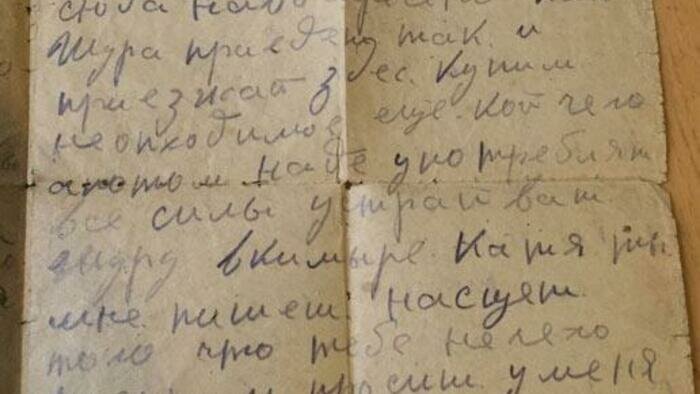 сюда
Шура приедет так и
приезжат здес. купим
неопходимое еще. кой чего
апотом наде употреблят
все силы устраиват
шуру вкимыре. Катя ты
мне пишеш. насщет
того что тебе нелехо
просиш у меня